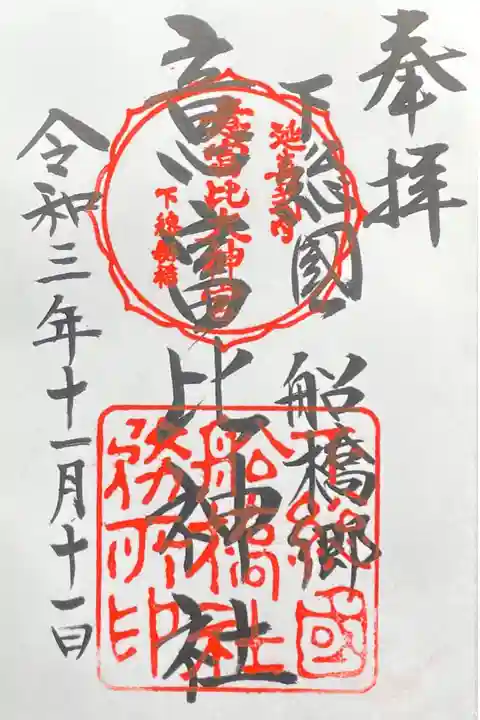 奉拝
下総國 船橋郷
意富比神社
令和三年十一月十一日
延喜式内
意富比大神宮
下總船橋
下総國
船橋社
務所印